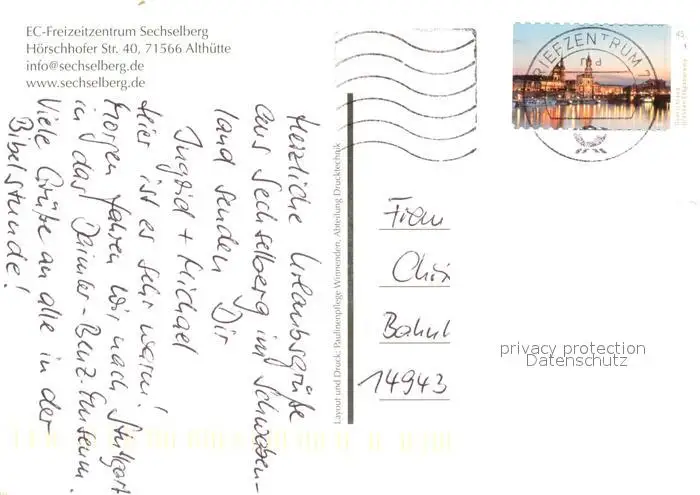 EC-Freizeitzentrum Sechselberg
Hörschhofer Str. 40, 71566 Althütte
info@sechselberg.de
www.sechselberg.de
Herzliche Urlaubsgrüße
aus Sechselberg im Schwaben-
land senden Dir
Ingrid + Michael
Hier ist es sehr warm!
Morgen fahren wir nach Stuttgart
in das Daimler-Benz-Museum.
Viele Grüße an alle in der
Bibelstunde!
Layout und Druck: Paulinenpflege Winnenden, Abteilung Drucktechnik
BRIEFZENTRUM 7
45
Deutschland
Frau
14943
privacy protection
Datenschutz